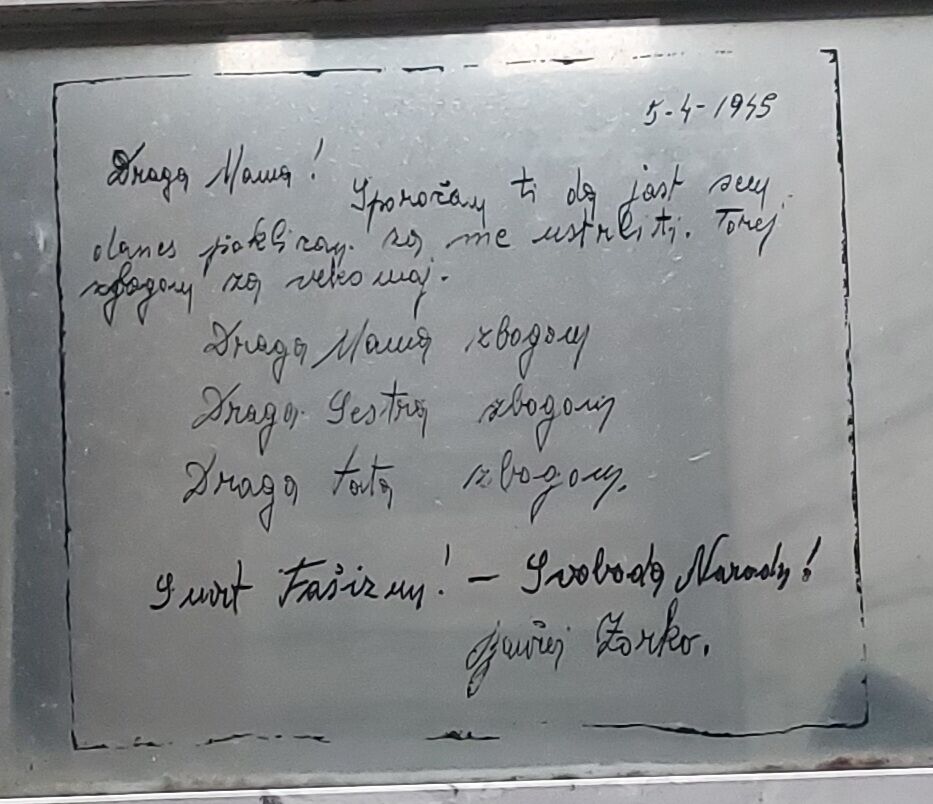 5-4-1945
Draga Mama!
Sporočam ti da jast sem
danes poklican. za me ustreliti. Torej
zbogom za vekomaj.
Draga Mama zbogom
Draga Sestra zbogom
Draga tata zbogom.
Smrt Fašizmu! – Svoboda Narodu!
Zorko.